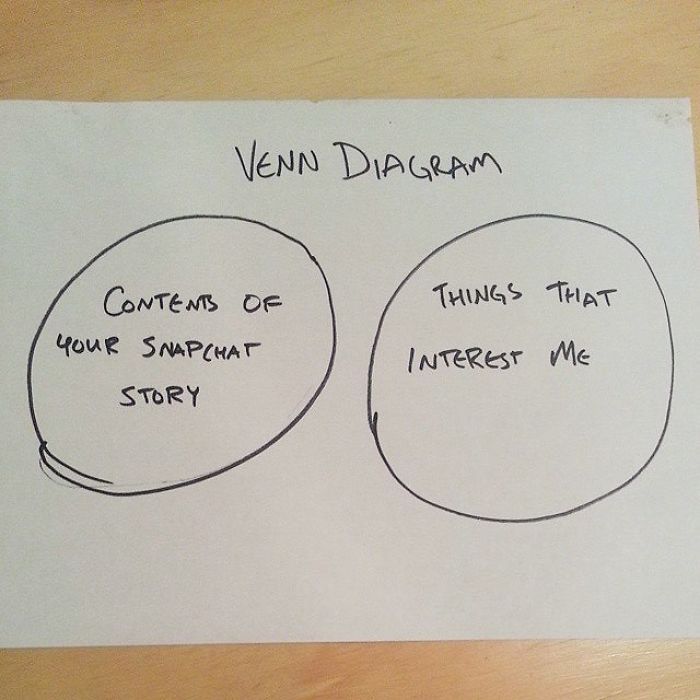 VENN DIAGRAM
CONTENTS OF
YOUR SNAPCHAT
STORY
THINGS THAT
INTEREST ME